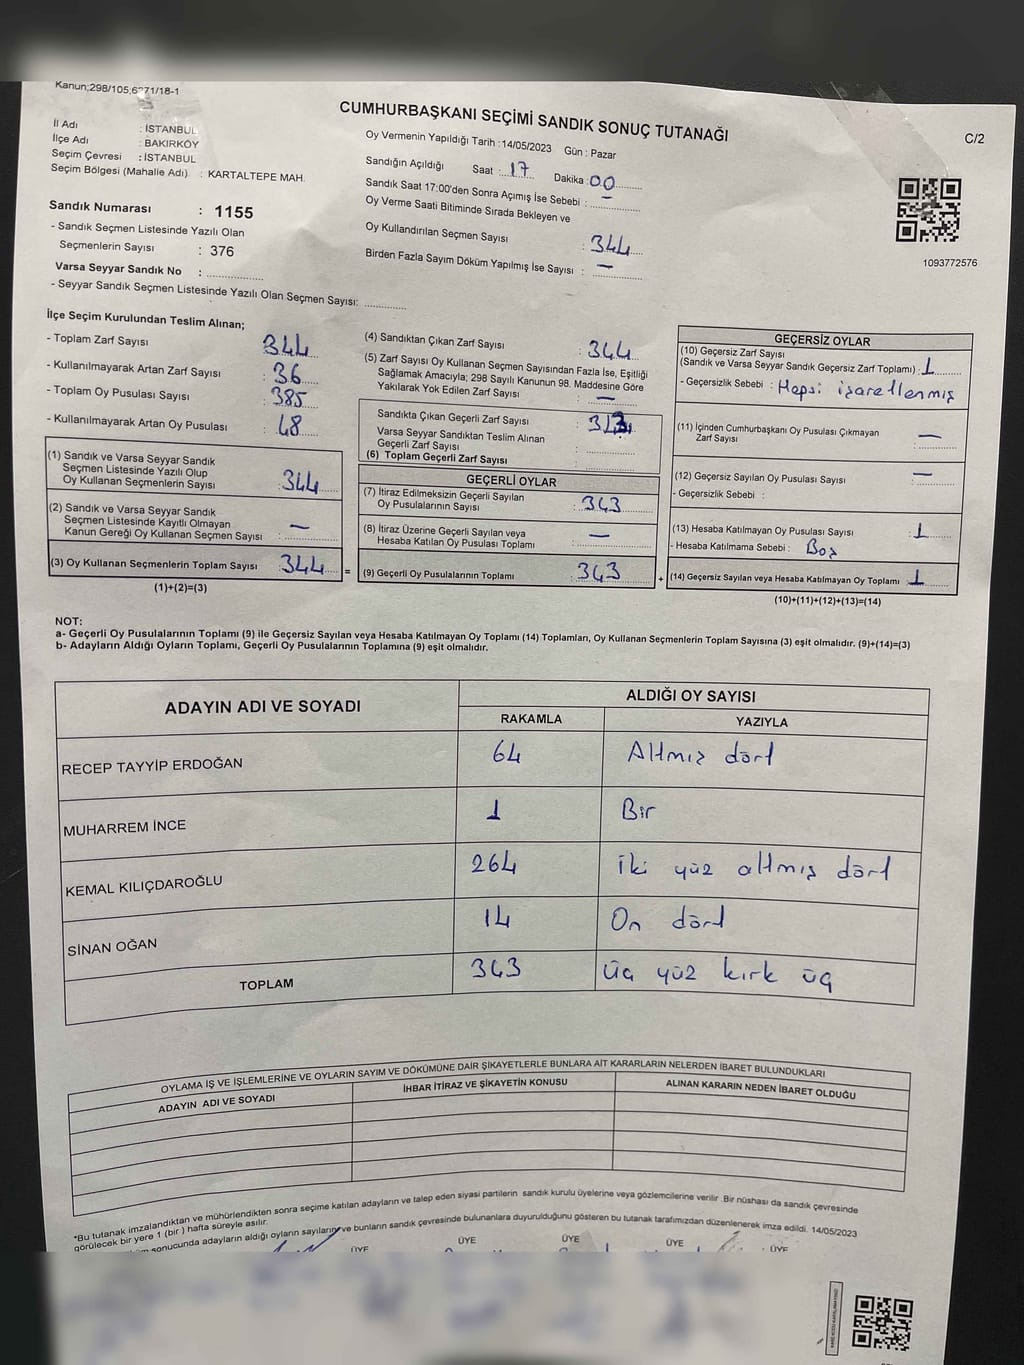 Kanun;298/105,6271/18-1
CUMHURBAŞKANI SEÇİMİ SANDIK SONUÇ TUTANAĞI
C/2
İl Adı : İSTANBUL
İlçe Adı : BAKIRKÖY
Seçim Çevresi : İSTANBUL
Seçim Bölgesi (Mahalle Adı) : KARTALTEPE MAH.
Sandık Numarası : 1155
- Sandık Seçmen Listesinde Yazılı Olan
Seçmenlerin Sayısı : 376
Varsa Seyyar Sandık No : ................
- Seyyar Sandık Seçmen Listesinde Yazılı Olan Seçmen Sayısı: ............
Oy Vermenin Yapıldığı Tarih :14/05/2023 Gün : Pazar
Sandığın Açıldığı Saat : 17 Dakika : 00
Sandık Saat 17:00'den Sonra Açımış İse Sebebi : —
Oy Verme Saati Bitiminde Sırada Bekleyen ve
Oy Kullandırılan Seçmen Sayısı : 344
Birden Fazla Sayım Döküm Yapılmış İse Sayısı : —
1093772576
İlçe Seçim Kurulundan Teslim Alınan;
- Toplam Zarf Sayısı : 344
- Kullanılmayarak Artan Zarf Sayısı : 36
- Toplam Oy Pusulası Sayısı : 385
- Kullanılmayarak Artan Oy Pusulası : 48
(1) Sandık ve Varsa Seyyar Sandık
Seçmen Listesinde Yazılı Olup
Oy Kullanan Seçmenlerin Sayısı : 344
(2) Sandık ve Varsa Seyyar Sandık
Seçmen Listesinde Kayıtlı Olmayan
Kanun Gereği Oy Kullanan Seçmen Sayısı : —
(3) Oy Kullanan Seçmenlerin Toplam Sayısı : 344 =
(1)+(2)=(3)
(4) Sandıktan Çıkan Zarf Sayısı : 344
(5) Zarf Sayısı Oy Kullanan Seçmen Sayısından Fazla İse, Eşitliği
Sağlamak Amacıyla; 298 Sayılı Kanunun 98. Maddesine Göre
Yakılarak Yok Edilen Zarf Sayısı : —
Sandıkta Çıkan Geçerli Zarf Sayısı :
Varsa Seyyar Sandıktan Teslim Alınan
Geçerli Zarf Sayısı :
(6) Toplam Geçerli Zarf Sayısı :
GEÇERLİ OYLAR
(7) İtiraz Edilmeksizin Geçerli Sayılan
Oy Pusulalarının Sayısı : 343
(8) İtiraz Üzerine Geçerli Sayılan veya
Hesaba Katılan Oy Pusulası Toplamı : —
(9) Geçerli Oy Pusulalarının Toplamı : 343 +
GEÇERSİZ OYLAR
(10) Geçersiz Zarf Sayısı
(Sandık ve Varsa Seyyar Sandık Geçersiz Zarf Toplamı) : 1
- Geçersizlik Sebebi : Hepsi işaretlenmiş
(11) İçinden Cumhurbaşkanı Oy Pusulası Çıkmayan
Zarf Sayısı : —
(12) Geçersiz Sayılan Oy Pusulası Sayısı : —
- Geçersizlik Sebebi :
(13) Hesaba Katılmayan Oy Pusulası Sayısı : 1
- Hesaba Katılmama Sebebi : Boş
(14) Geçersiz Sayılan veya Hesaba Katılmayan Oy Toplamı : 1
(10)+(11)+(12)+(13)=(14)
NOT:
a- Geçerli Oy Pusulalarının Toplamı (9) ile Geçersiz Sayılan veya Hesaba Katılmayan Oy Toplamı (14) Toplamları, Oy Kullanan Seçmenlerin Toplam Sayısına (3) eşit olmalıdır. (9)+(14)=(3)
b- Adayların Aldığı Oyların Toplamı, Geçerli Oy Pusulalarının Toplamına (9) eşit olmalıdır.
ADAYIN ADI VE SOYADI
ALDIĞI OY SAYISI
RAKAMLA YAZIYLA
RECEP TAYYİP ERDOĞAN 64 Altmış dört
MUHARREM İNCE 1 Bir
KEMAL KILIÇDAROĞLU 264 iki yüz altmış dört
SİNAN OĞAN 14 On dört
TOPLAM 343 üç yüz kırk üç
OYLAMA İŞ VE İŞLEMLERİNE VE OYLARIN SAYIM VE DÖKÜMÜNE DAİR ŞİKAYETLERLE BUNLARA AİT KARARLARIN NELERDEN İBARET BULUNDUKLARI
ADAYIN ADI VE SOYADI İHBAR İTİRAZ VE ŞİKAYETİN KONUSU ALINAN KARARIN NEDEN İBARET OLDUĞU
*Bu tutanak imzalandıktan ve mühürlendikten sonra seçime katılan adayların ve talep eden siyasi partilerin sandık kurulu üyelerine veya gözlemcilerine verilir .Bir nüshası da sandık çevresinde
görülecek bir yere 1 (bir ) hafta süreyle asılır.
sonucunda adayların aldığı oyların sayıların ve bunların sandık çevresinde bulunanlara duyurulduğunu gösteren bu tutanak tarafımızdan düzenlenerek imza edildi. 14/05/2023
ÜYE ÜYE ÜYE ÜYE ÜYE